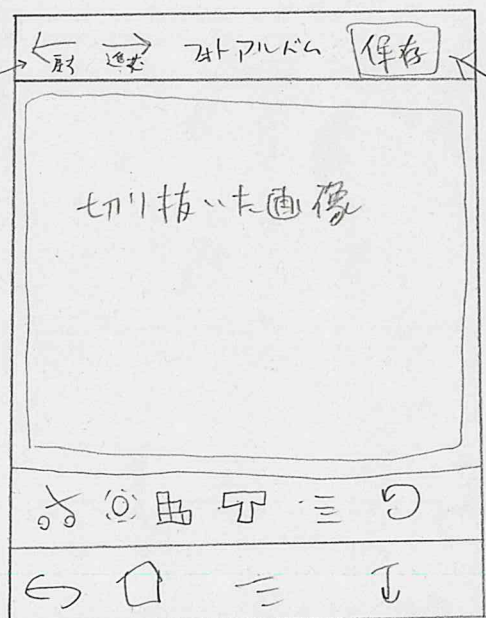 戻る 進む フォトアルバム 保存
切り抜いた画像